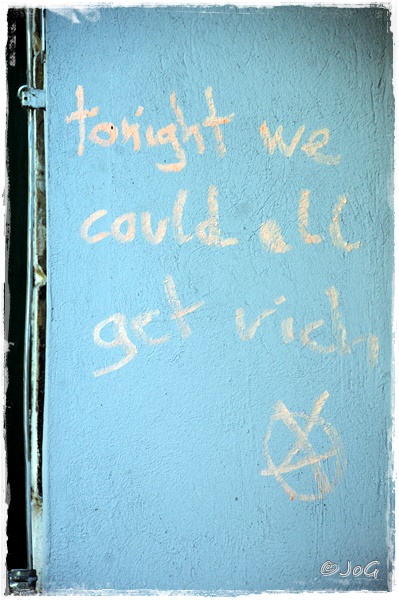 tonight we
could all
get rich
©JoG